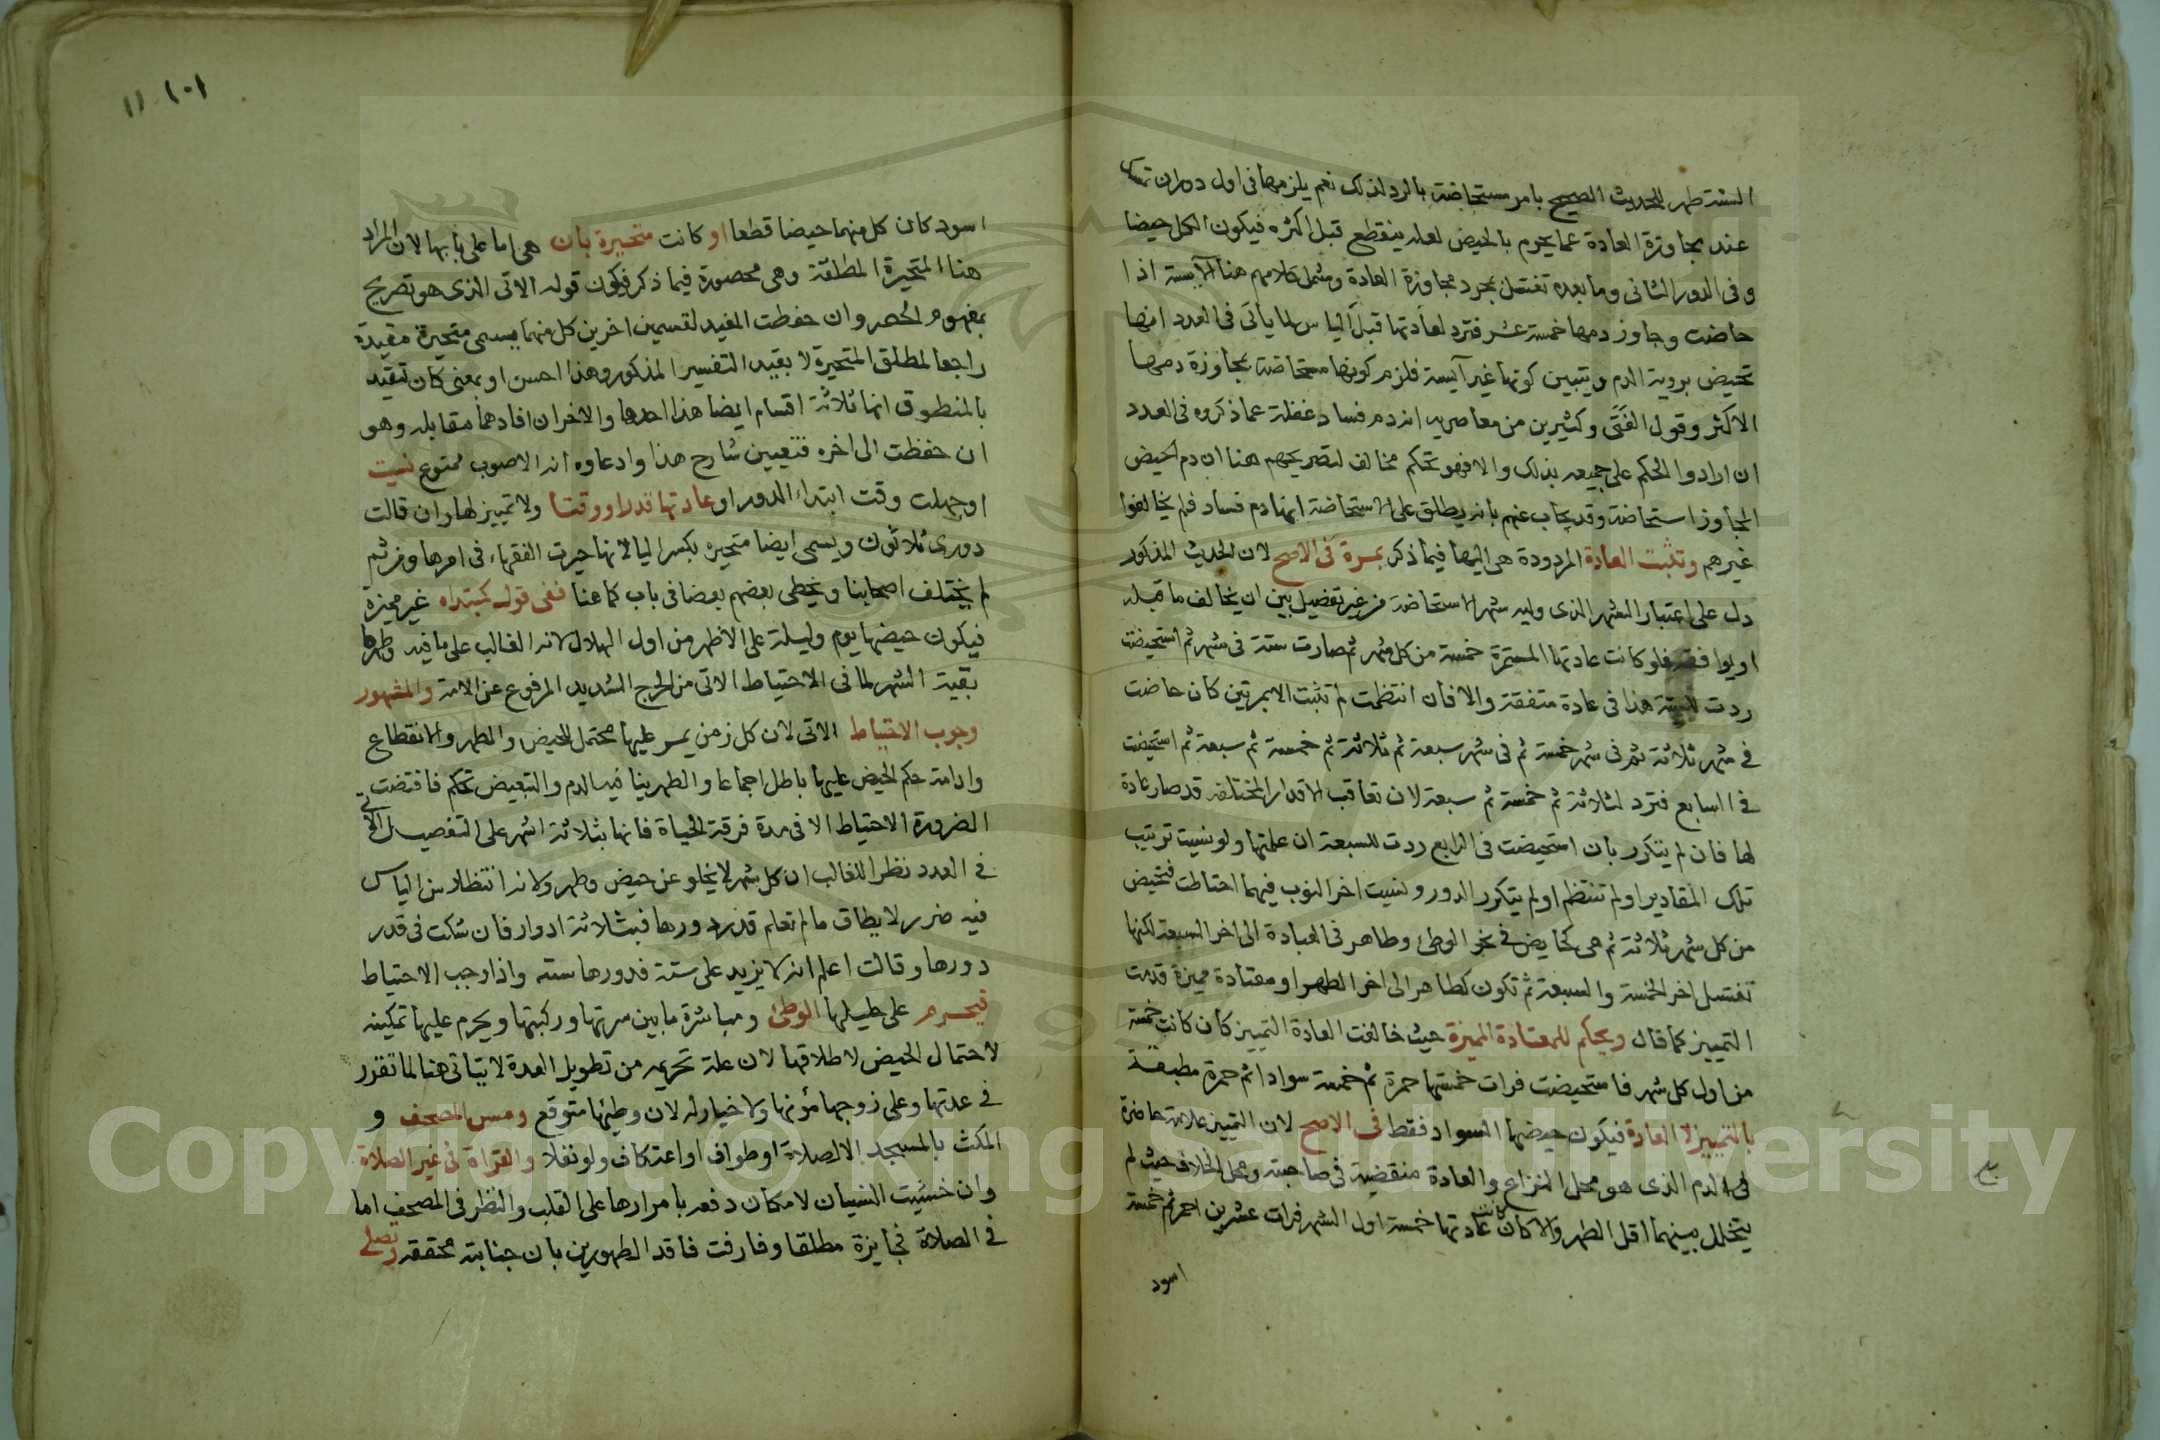 السنة طهر للحديث الصحيح بامر مستحاضة بالرد لذلك نعم يلزمها في اول دور ان تمسك
عند مجاوزة العادة عما يحرم بالحيض لعله ينقطع قبل اكثره فيكون الكل حيضا
وفي الدور الثاني وما بعده تغتسل بمجرد مجاوزة العادة وشمل كلامهم هنا الآيسة اذا
حاضت وجاوز دمها خمسة عشر فترد لعادتها قبل الياس لما ياتي في العدد انها
تحيض بروية الدم ويتبين كونها غير آيسة فلزم كونها مستحاضة بمجاوزة دمها
الاكثر وقول الفتى وكثيرين من معاصريه انه دم فساد غفلة عما ذكروه في العدد
ان ارادوا الحكم على جميعه بذلك والا فهو تحكم مخالف لتصريحهم هنا ان دم الحيض
المجاوز استحاضة وقد يجاب عنهم بانه يطلق على الاستحاضة انها دم فساد فلم يخالفوا
غيرهم وتثبت العادة المردودة هي اليها فيما ذكر بمرة في الاصح لان الحديث المذكور
دل على اعتبار الشهر الذي وليه شهر الاستحاضة من غير تفصيل بين ان يخالف ما قبله
او يوافقه فلو كانت عادتها المستمرة خمسة من كل شهر ثم صارت ستة في شهر ثم استحيضت
ردت للستة هذا في عادة متفقة والا فان انتظمت لم تثبت الا بمرتين كان حاضت
في شهر ثلاثة ثم في شهر خمسة ثم في شهر سبعة ثم ثلاثة ثم خمسة ثم سبعة ثم استحيضت
في السابع فترد لثلاثة ثم خمسة ثم سبعة لان تعاقب الاقدار المختلفة قد صار عادة
لها فان لم يتكرر بان استحيضت في الرابع ردت للسبعة ان علمتها ولو نسيت ترتيب
تلك المقادير او لم تنتظم او لم يتكرر الدور ونسيت اخر النوب فيهما احتاطت فتحيض
من كل شهر ثلاثة ثم هي كحايض في نحو الوطئ وطاهر في العبادة الى اخر السبعة لكنها
تغتسل اخر الخمسة والسبعة ثم تكون كطاهر الى اخر الطهر او معتادة مميزة قدمت
التمييز كما قال ويحكم للمعتادة المميزة حيث خالفت العادة التمييز كان كانت خمسة
من اول كل شهر فاستحيضت فرات خمستها حمرة ثم خمسة سوادا ثم حمرة مطبقة
بالتمييز لا العادة فيكون حيضها السواد فقط في الاصح لان التمييز علامة حاضرة
في الدم الذي هو محل النزاع والعادة منقضية في صاحبته ومحل الخلاف حيث لم
يتخلل بينهما اقل الطهر والا كان كانت عادتها خمسة اول الشهر فرات عشرين احمر ثم خمسة
اسود
١٠١ ١١
اسود كان كل منهما حيضا قطعا او كانت متحيرة بان هي اما على بابها لان المراد
هنا المتحيرة المطلقة وهي محصورة فيما ذكر فيكون قوله الاتي الذي هو تصريح
بمفهوم الحصر وان حفظت المفيد لقسمين اخرين كل منهما يسمى متحيرة مقيدة
راجعا لمطلق المتحيرة لا بقيد التفسير المذكور وهذا احسن او بمعنى كان تنقيد
بالمنطوق انها ثلاثة اقسام ايضا هذا احدها والاخران افادهما مقابله وهو
ان حفظت الى اخره فتعيين شارح هذا وادعاوه انه الاصوب ممنوع نسيت
او جهلت وقت ابتداء الدور او عادتها قدرا ووقتا ولا تمييز لها وان قالت
دوري ثلاثون ويسمى ايضا متحيره بكسر اليا لانها حيرت الفقهاء في امرها ومن ثم
لم يختلف اصحابنا ويخطى بعضهم بعضا في باب كما هنا ففي قول كمبتداه غير مميزة
فيكون حيضها يوم وليلة على الاظهر من اول الهلال لانه الغالب على ما فيه وطهرها
بقية الشهر لما في الاحتياط الاتي من الحرج الشديد المرفوع عن الامة والمشهور
وجوب الاحتياط الاتي لان كل زمن يمر عليها محتمل للحيض والطهر والانقطاع
وادامة حكم الحيض عليها باطل اجماعا والطهر ينافيه الدم والتبعيض تحكم فاقتضت
الضرورة الاحتياط الا في عدة فرقة الحياة فانها بثلاثة اشهر على التفصيل الاتي
في العدد نظرا للغالب ان كل شهر لا يخلو عن حيض وطهر ولانه انتظار سن الياس
فيه ضرر لا يطاق ما لم تعلم قدر دورها فبثلاثة ادوار فان شكت في قدر
دورها وقالت اعلم انه لا يزيد على ستة فدورها سته واذا وجب الاحتياط
فيحرم على حليلها الوطئ ومباشرة ما بين سرتها وركبتها ويحرم عليها تمكينه
لاحتمال الحيض لا طلاقها لان علة تحريمه من تطويل العدة لا يتاتى هنا لما تقرر
في عدتها وعلى زوجها مؤنها ولا خيار له لان وطئها متوقع ومس المصحف و
المكث بالمسجد الا لصلاة او طواف او اعتكاف ولو نفلا والقراة في غير الصلاة
وان خشيت النسيان لامكان دفعه بامرارها على القلب والنظر في المصحف اما
في الصلاة فجايزة مطلقا وفارقت فاقد الطهورين بان جنابته محققة وتصلي